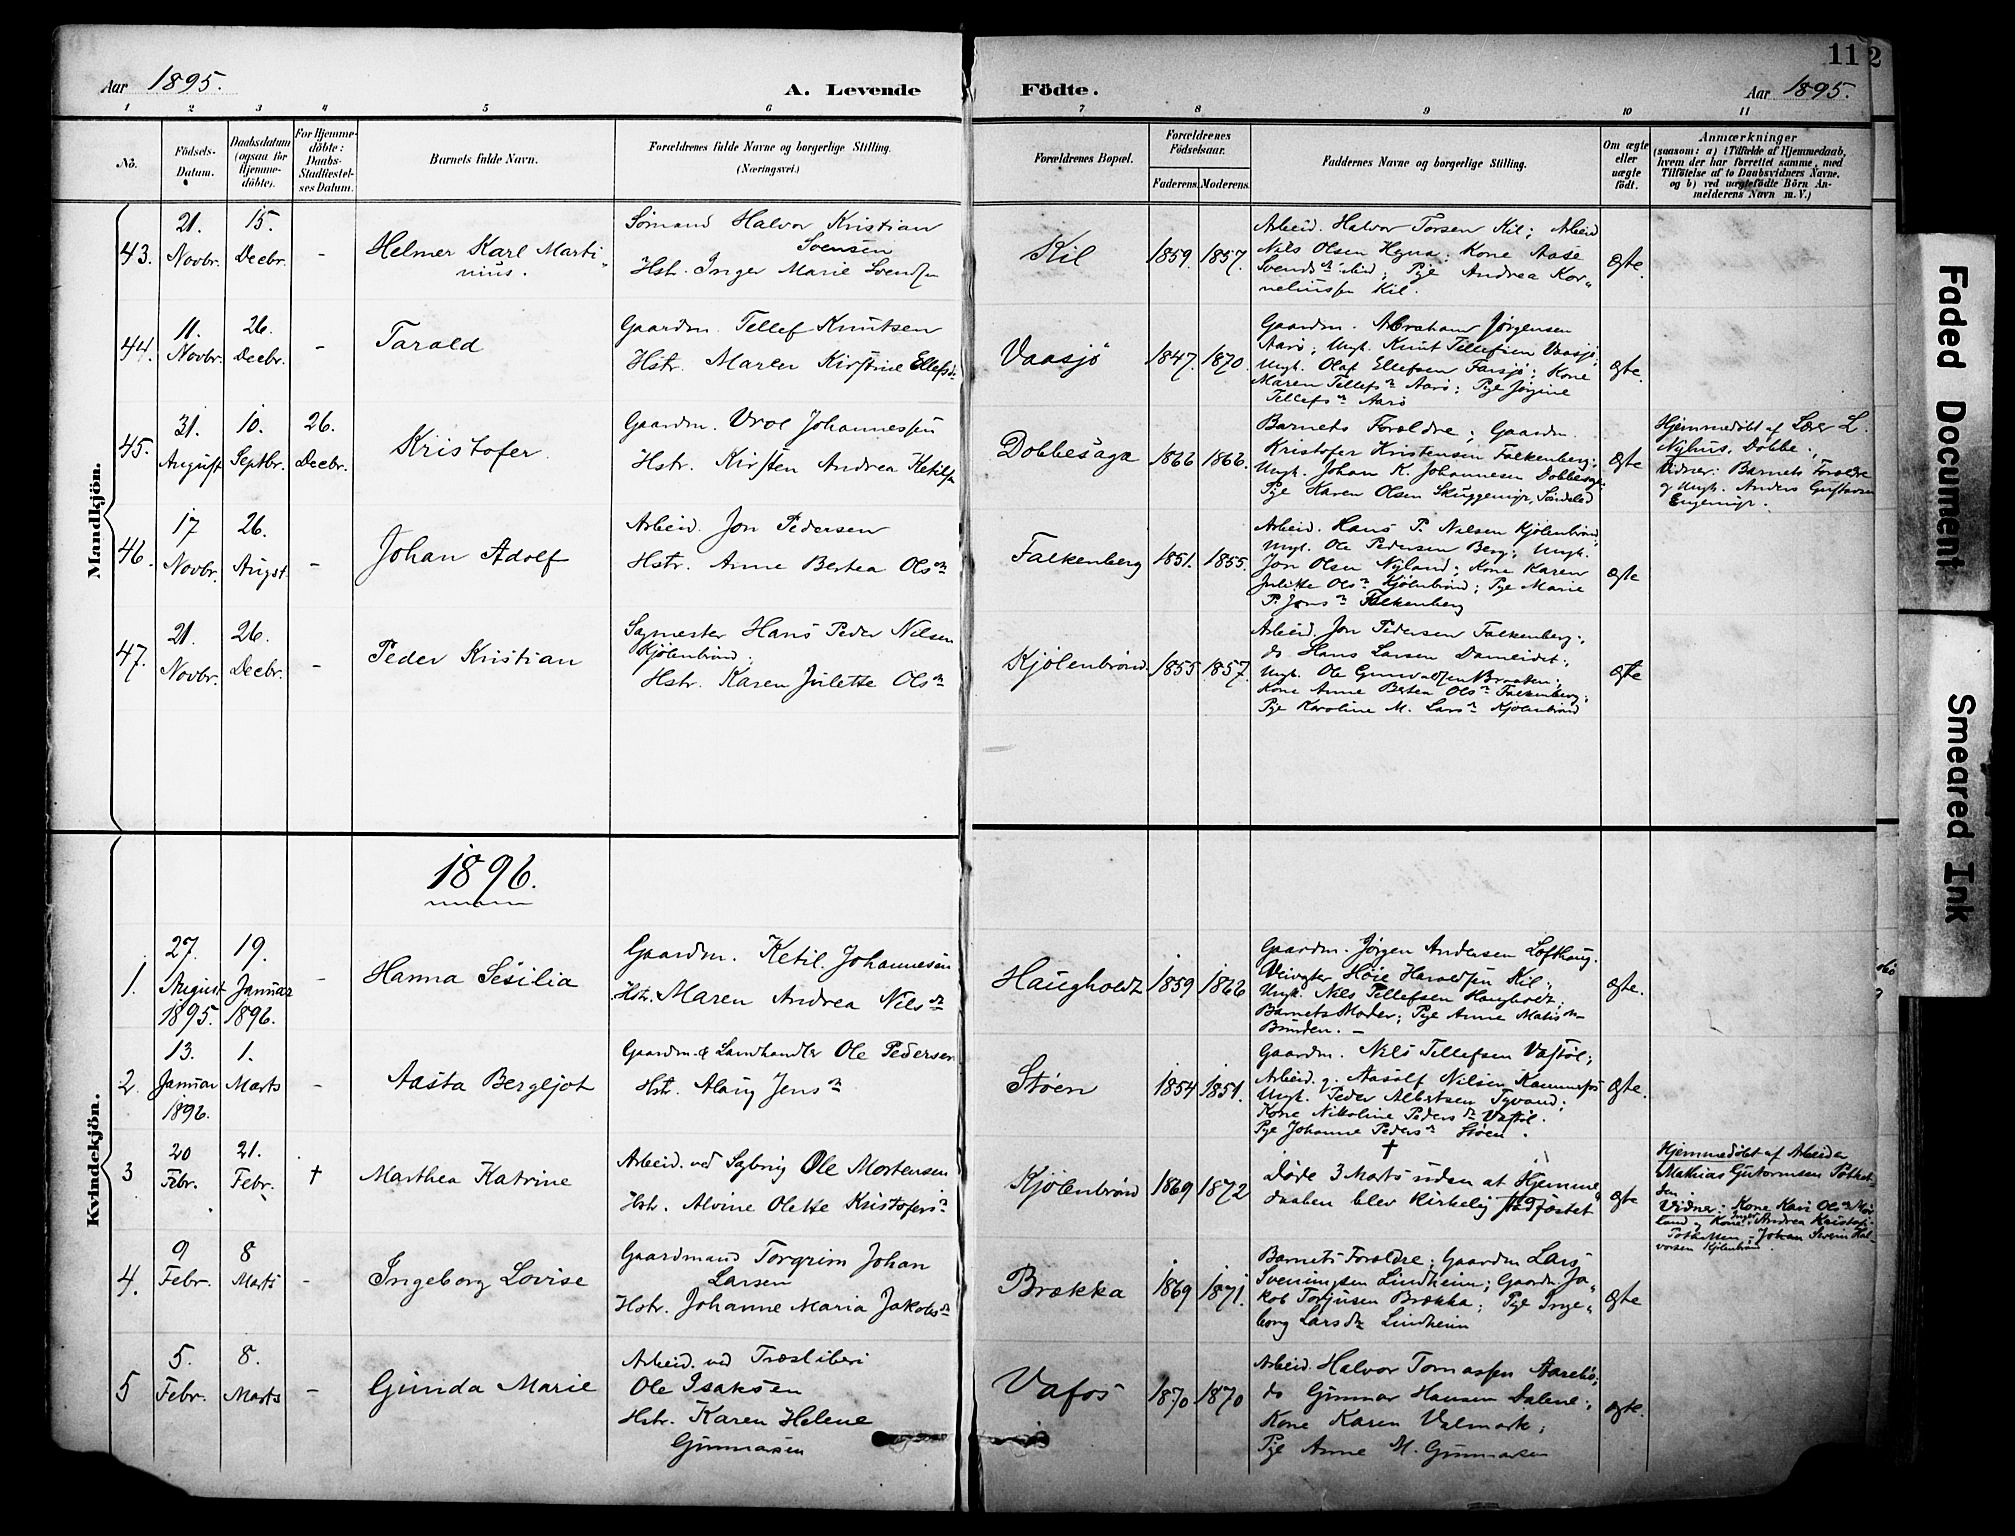 Aar 1895.
A. Levende
Födte.
11
2
Aar 1895.
1 2 3 4 5 6 7 8 9 10 11
No.
Födsels-
Datum.
Daabsdatum
(ogsaa for
Hjemme-
döbte).
For Hjemme-
döbte:
Daabs-
Stadfæstel-
ses Datum.
Barnets fulde Navn.
Forældrenes fulde Navne og borgerlige Stilling.
(Næringsvei.)
Forældrenes Bopæl.
Forældrenes
Födselsaar.
Faderens. Moderens.
Faddernes Navne og borgerlige Stilling.
Om ægte
eller
uægte
födt.
Anmærkninger
(saasom: a) i Tilfælde af Hjemmedaab,
hvem der har forrettet samme, med
Tilföielse af to Daabsvidners Navne.
og b) ved uægtefödte Börn An-
melderens Navn m. V.)
Mandkjön.
43.
21.
Novbr.
15.
Decbr.
-
Helmer Karl Marti-
nius.
Sømand Halvor Kristian
Svensen
Hstr. Inger Marie Svendsn
Kil
1859. 1857.
Arbeid. Halvor Torsen Kil; Arbeid
Nils Olsen Hegna; Kone Aase
Svendsdr ibid; Pige Andrea Kor-
neliussn Kil.
Ægte.
44.
11.
Novbr.
26.
Decbr.
-
Tarald
Gaardm. Tellef Knutsen
Hstr. Maren Kirstine Ellefsdr
Vaasjø
1847. 1870.
Gaardm. Abraham Jørgensen
Aarø; Ungk. Knut Tellefsen Vaasjø;
Ungk. Olaf Ellefsen Farsjø; Kone
Maren Tellefsdr Aarø; Pige Jørgine
Tellefsdr Aarø
Ægte.
45.
31.
August
10.
Septbr.
26.
Decbr.
Kristofer.
Gaardm. Vrol Johannessen
Hstr. Kirsten Andrea Ketilsn
Dobbesaga
1866 1866.
Barnets Forældre; Gaardm.
Kristofer Kristensen Falkenberg;
Ungk. Johan K. Johannesen Dobbesaga;
Pige Karen Olsen Skuggemyr, Søndeled
Ægte
Hjemmedøbt af Lærer L.
Nyhus, Dobbe.,
Vidner: Barnets Forældre
og Ungk. Anders Gustavsen
Engemyr.
46.
17
Novbr.
26.
Augst.
-
Johan Adolf
Arbeid. Jon Pedersen
Hstr. Anne Bertea Olsdr
Falkenberg
1851. 1855.
Arbeid. Hans P. Nilsen Kjølenbrønd;
Ungk. Ole Pedersen Berg; Ungk.
Jon Olsen Nyland; Kone Karen
Julette Olsdr Kjølenbrønd; Pige Marie
P. Jonsdr Falkenberg
Ægte
47.
21.
Novbr.
26.
Decbr.
-
Peder Kristian
Sagmester Hans Peder Nilsen
Kjølenbrønd;
Hstr. Karen Julette Olsdr
Kjølenbrønd
1855 1857.
Arbeid. Jon Pedersen Falkenberg;
do Hans Larsen Dameidet;
Ungk. Ole Gunvaldsen Braaten;
Kone Anne Bertea Olsdr Falkenberg;
Pige Karoline M. Larsdr Kjølenbrønd
Ægte
Kvindekjön.
1896.
1.
27.
August
1895.
19.
Januar
1896.
-
Hanna Sesilia
Gaardm. Ketil Johannesen
Hstr. Maren Andrea Nilsdr
Haugholdt
1859 1866
Gaardm. Jørgen Andersen Lofthaug.
Veivogter Høie Haraldsen Kil;
Ungk. Nils Tellefsen Haugholdt;
Barnets Moder; Pige Anne Matisdr
Bunden. -
Ægte.
2.
13.
Januar
1896.
1.
Marts
-
Aasta Bergljot
Gaardm. & Landhandler Ole Pedersen
Hstr. Alaug Jensdr
Støen
1854 1851.
Gaardm. Nils Tellefsen Vastøl;
Arbeid. g. Aasolf Nilsen Kammerfos
Ungk. Peder Albertsen Tyvand;
Kone Nikoline Pedersdr Vastøl.
Pige Johanne Pedersdr Støen.
Ægte.
3
20
Febr.
21.
Febr.
†
Marthea Katrine
Arbeid. ved Sagbrug Ole Mortensen
Hstr. Alvine Olette Kristofersdr
Kjølenbrønd
1869 1872
†
Døde 3 Marts uden at Hjemme-
daaben blev kirkelig stadfæstet
Ægte
Hjemmedøbt af Arbeider
Mathias Gutormsen
Vidner: Kone Kari Olsdr
Kone Inger Andrea
Johan
Kjølenbrønd.
4.
9
Febr.
8
Marts
-
Ingeborg Lovise
Gaardmand Torgrim Johan
Larsen
Hstr. Johanne Maria Jakobsdr
Brækka
1869 1871.
Barnets Forældre; Gaardm Lars
Sveningsen Lindheim; Gaardm Ja-
kob Torjusen Brækka; Pige Inge-
borg Larsdr Lindheim
Ægte
5
5.
Febr.
8.
Marts
-
Gunda Marie
Arbeid. ved Træsliberi
Ole Isaksen
Hstr. Karen Helene
Gunnarsen
Vafos
1870 1870
Arbeid. Halvor Tomassen Aarebø;
do Gunnar Hansen Dalene;
Kone Karen Valmark;
Pige Anne M. Gunnarsen
Ægte.
Faded Document
Smeared Ink